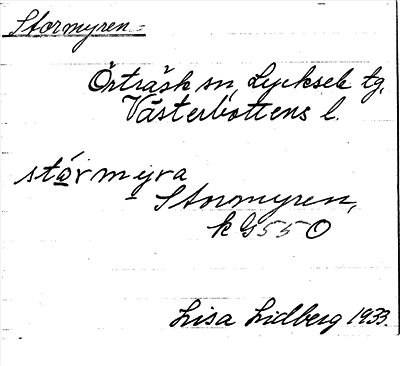 Stormyren =
Örträsk sn, Lycksele tg,
Västerbottens l.
stórmyra
Stormyren,
k G 55 O
Lisa Lidberg 1933.